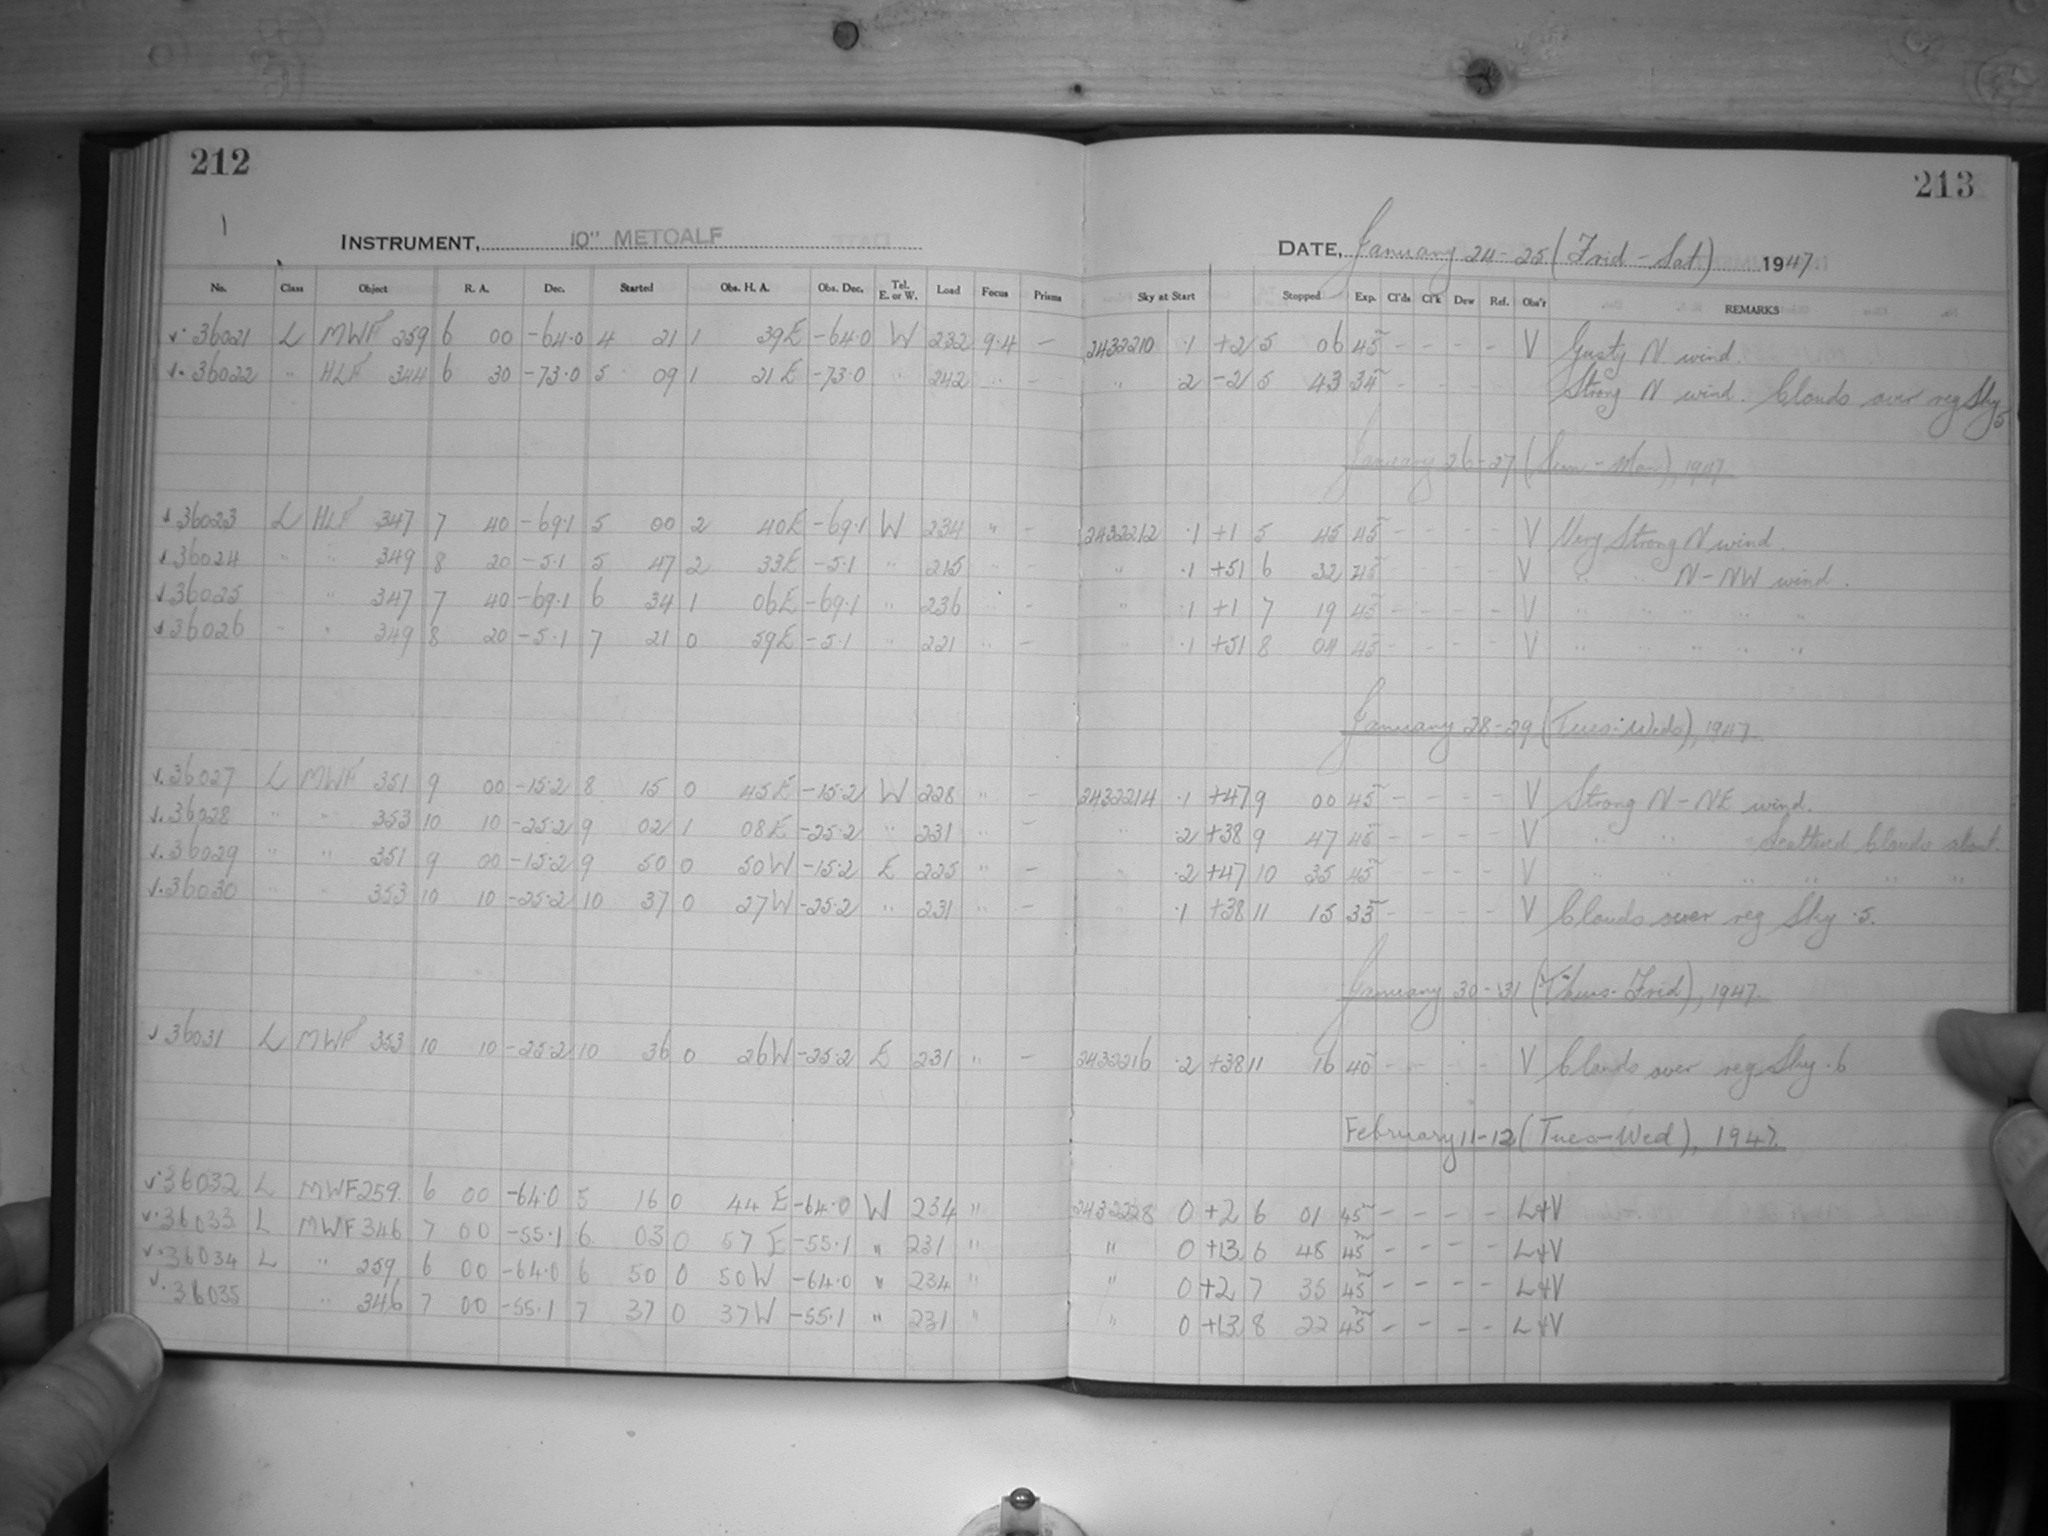 212
213
1
INSTRUMENT, 10" METCALF
DATE, January 24-25 (Frid-Sat) 1947
No. Class Object R. A. Dec. Started Obs. H. A. Obs. Dec. Tel. E. or W. Load Focus Prisms Sky at Start Stopped Exp. Cl'ds Cl'k Dew Ref. Obs'r REMARKS
36021 L MWF 259 6 00 -64.0 4 21 1 39E -64.0 W 232 9.4 - 2432210 .1 +2 5 06 45 - - - - V Gusty N wind.
36022 " HLF 344 6 30 -73.0 5 09 1 21E -73.0 " 242 " - " .2 -2 5 43 34 - - - - Strong N wind. Clouds over reg Sky 5
January 26-27 (Sun-Mon), 1947
36023 L HLF 347 7 40 -69.1 5 00 2 40E -69.1 W 234 " - 2432212 .1 +1 5 45 45 - - - - V Very Strong N wind.
36024 " " 349 8 20 -5.1 5 47 2 33E -5.1 " 215 " - " .1 +51 6 32 45 - - - - V " " N-NW wind.
36025 " " 347 7 40 -69.1 6 34 1 06E -69.1 " 236 " - " .1 +1 7 19 45 - - - - V " " " " "
36026 " " 349 8 20 -5.1 7 21 0 59E -5.1 " 221 " - " .1 +51 8 04 45 - - - - V " " " " "
January 28-29 (Tues-Weds), 1947
36027 L MWF 351 9 00 -15.2 8 15 0 45E -15.2 W 228 " - 2432214 .1 +47 9 00 45 - - - - V Strong N-NE wind.
36028 " " 353 10 10 -25.2 9 02 1 08E -25.2 " 231 " - " .2 +38 9 47 45 - - - - V " " " Scattered Clouds about.
36029 " " 351 9 00 -15.2 9 50 0 50W -15.2 E 225 " - " .2 +47 10 35 45 - - - - V " " " " " "
36030 " " 353 10 10 -25.2 10 37 0 27W -25.2 " 231 " - " .1 +38 11 15 35 - - - - V Clouds over reg Sky .5.
January 30-31 (Thurs-Frid), 1947.
36031 L MWF 353 10 10 -25.2 10 36 0 26W -25.2 E 231 " - 2432216 .2 +38 11 16 40 - - - - V Clouds over reg Sky .6
February 11-12 (Tues-Wed), 1947.
36032 L MWF 259. 6 00 -64.0 5 16 0 44E -64.0 W 234 " 2432228 0 +2 6 01 45 - - - - L+V
36033 L MWF 346 7 00 -55.1 6 03 0 57E -55.1 " 231 " " 0 +13 6 48 45 - - - - L+V
36034 L " 259 6 00 -64.0 6 50 0 50W -64.0 " 234 " " 0 +2 7 35 45 - - - - L+V
36035 " 346 7 00 -55.1 7 37 0 37W -55.1 " 231 " " 0 +13 8 22 45 - - - - L+V